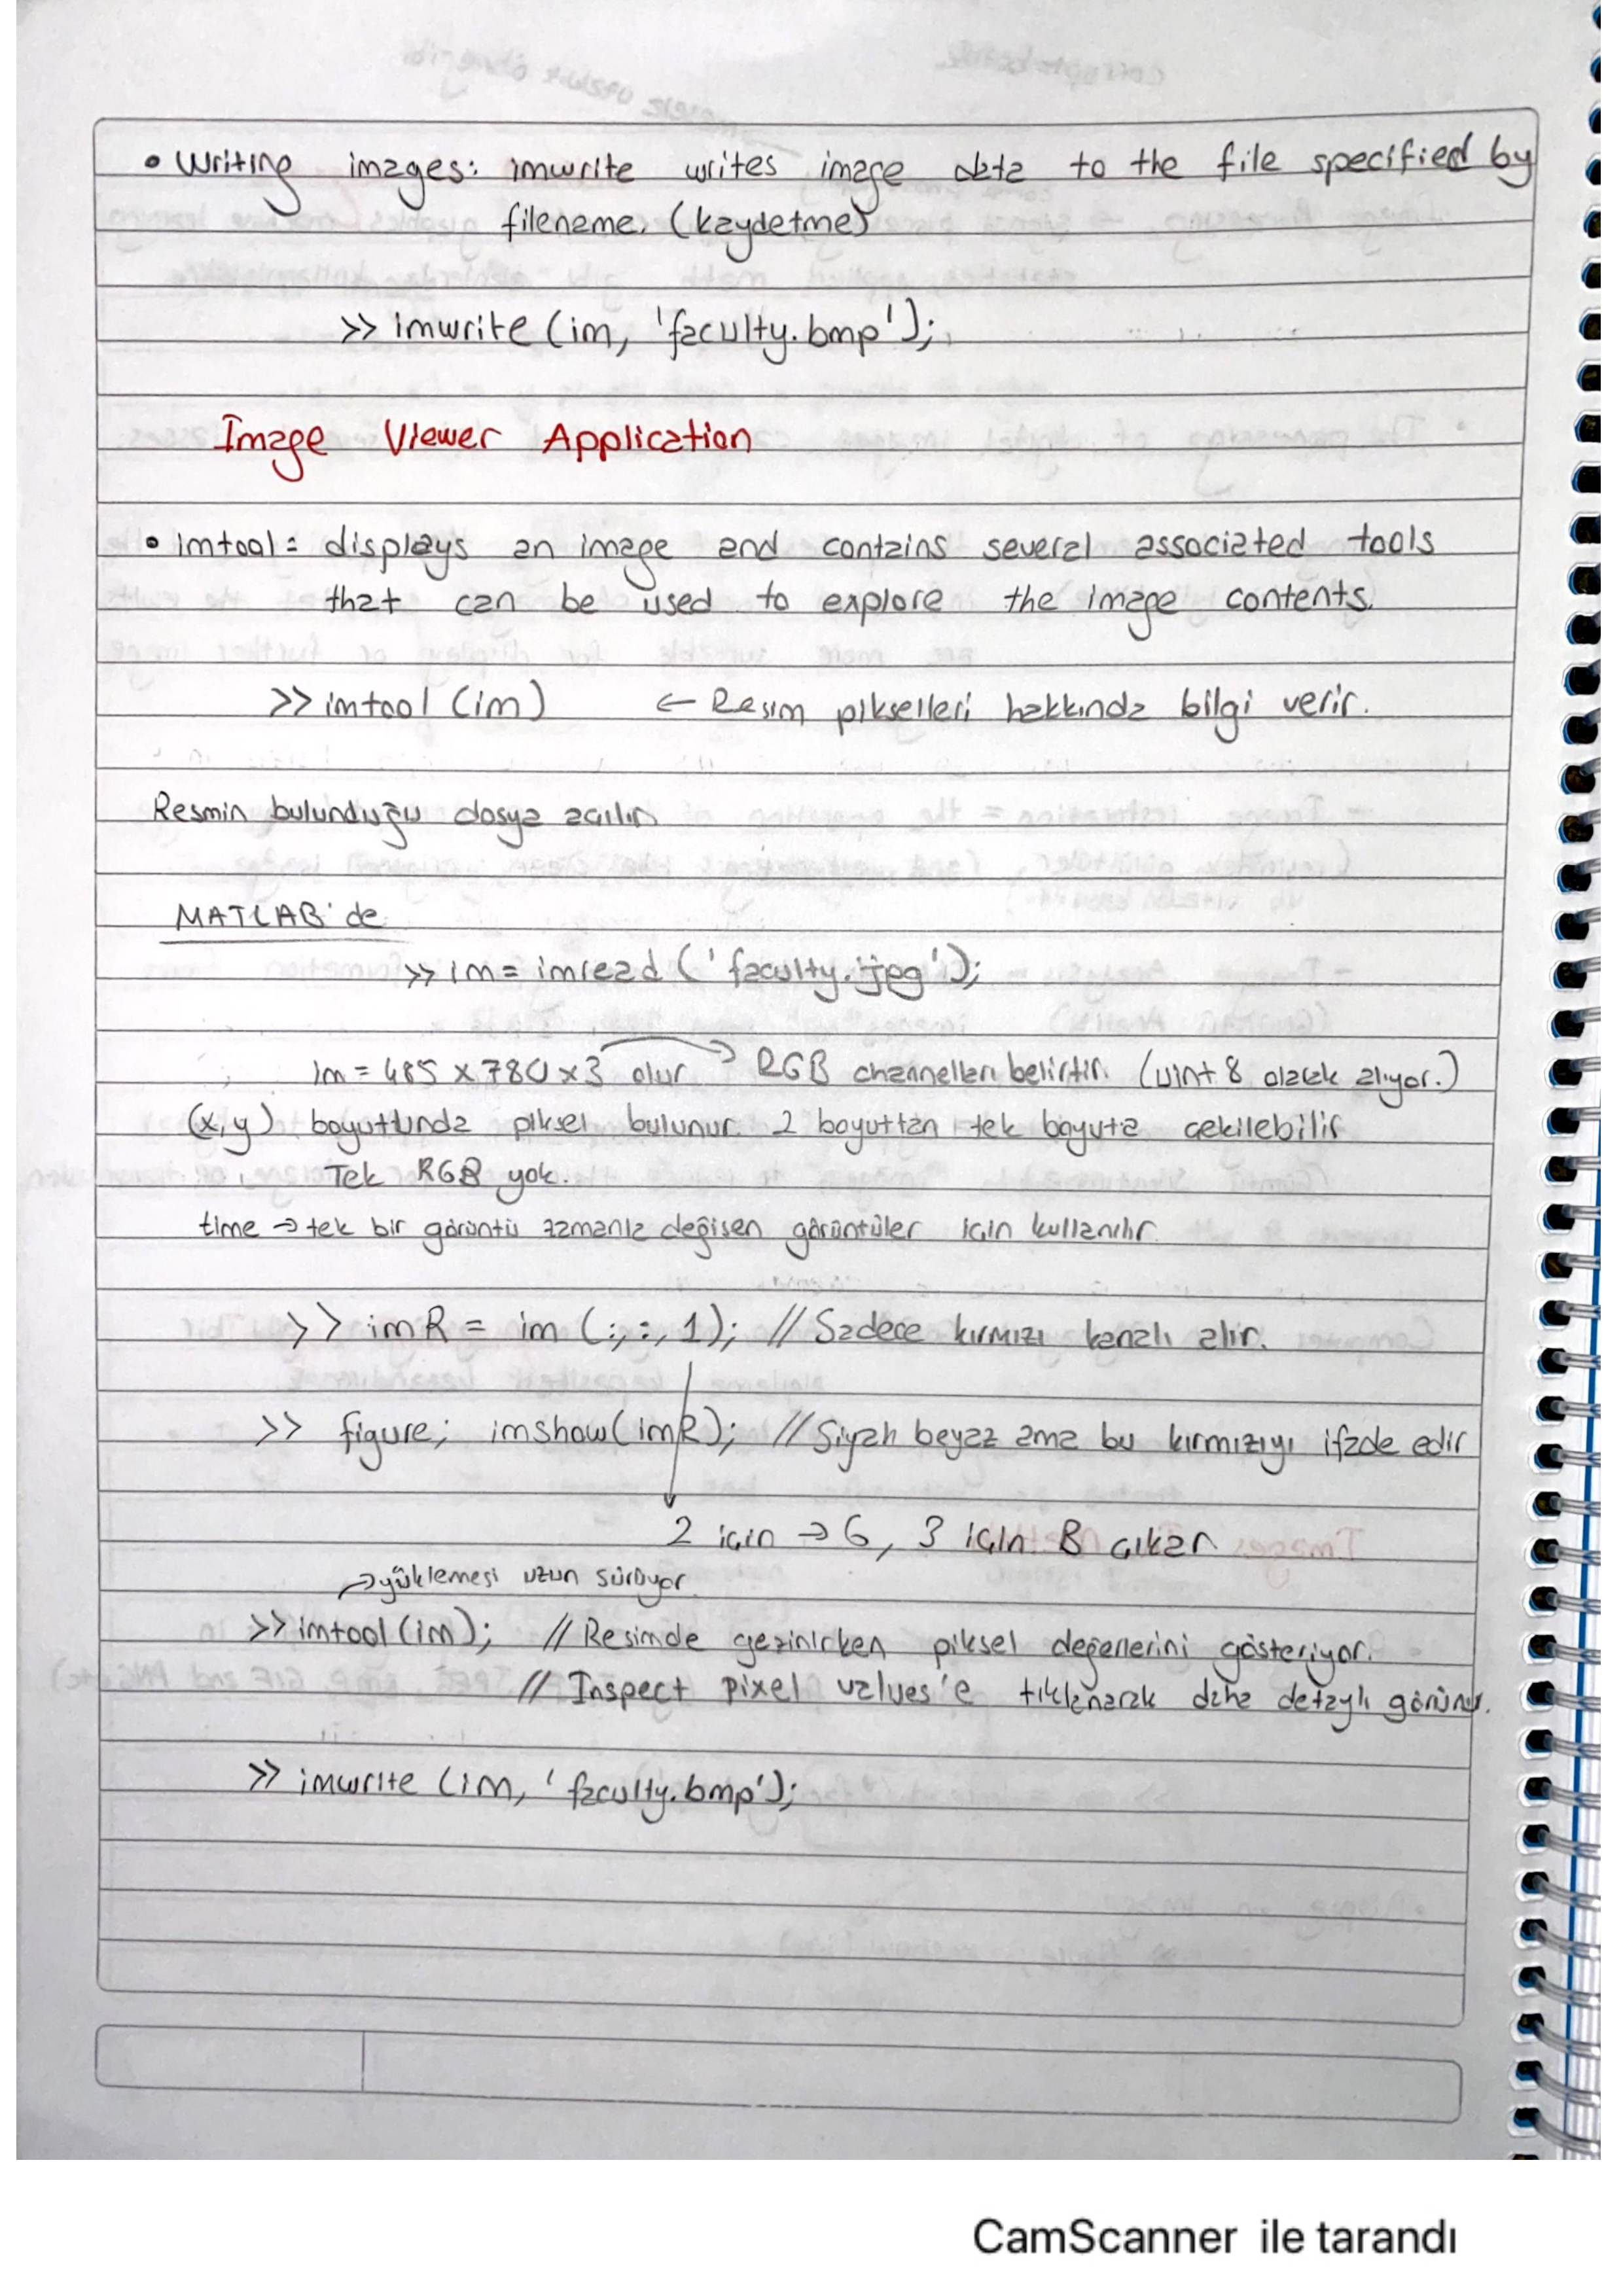 • Writing images: imwrite writes image data to the file specified by
filename. (kaydetme)
>> imwrite (im, 'faculty.bmp');
Image Viewer Application
• imtool = displays an image and contains several associated tools
that can be used to explore the image contents.
>> imtool (im) ← Resim pikselleri hakkında bilgi verir.
Resmin bulunduğu dosya açılır.
MATLAB'de
>> im = imread ('faculty.jpg');
im = 485 x 780 x 3 olur → RGB channelları belirtir. (uint 8 olarak alıyor.)
(x,y) boyutunda piksel bulunur. 2 boyuttan tek boyuta çekilebilir
Tek RGB yok.
time → tek bir görüntü zamanla değişen görüntüler için kullanılır.
>> imR = im (:,:,1); // Sadece kırmızı kanalı alır.
>> figure; imshow(imR); // Siyah beyaz ama bu kırmızıyı ifade edir
2 için → G, 3 için B çıkar
→ yüklemesi uzun sürüyor.
>> imtool (im); // Resimde gezinirken piksel değerlerini gösteriyor.
// Inspect pixel values'e tıklanarak daha detaylı görünür.
>> imwrite (im, 'faculty.bmp');
CamScanner ile tarandı